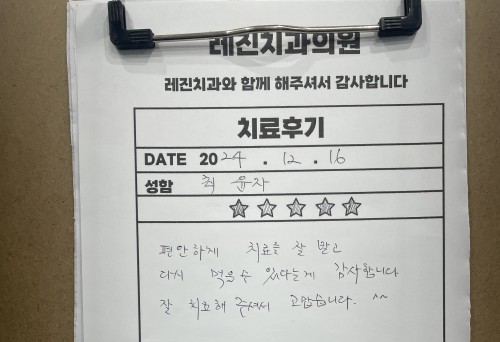 레진치과의원
레진치과와 함께 해주셔서 감사합니다
치료후기
DATE 2024 . 12 . 16
성함 최윤자
편안하게 치료를 잘 받고
다시 먹을수 있다는게 감사합니다
잘 치료해 주셔서 고맙습니다. ^^